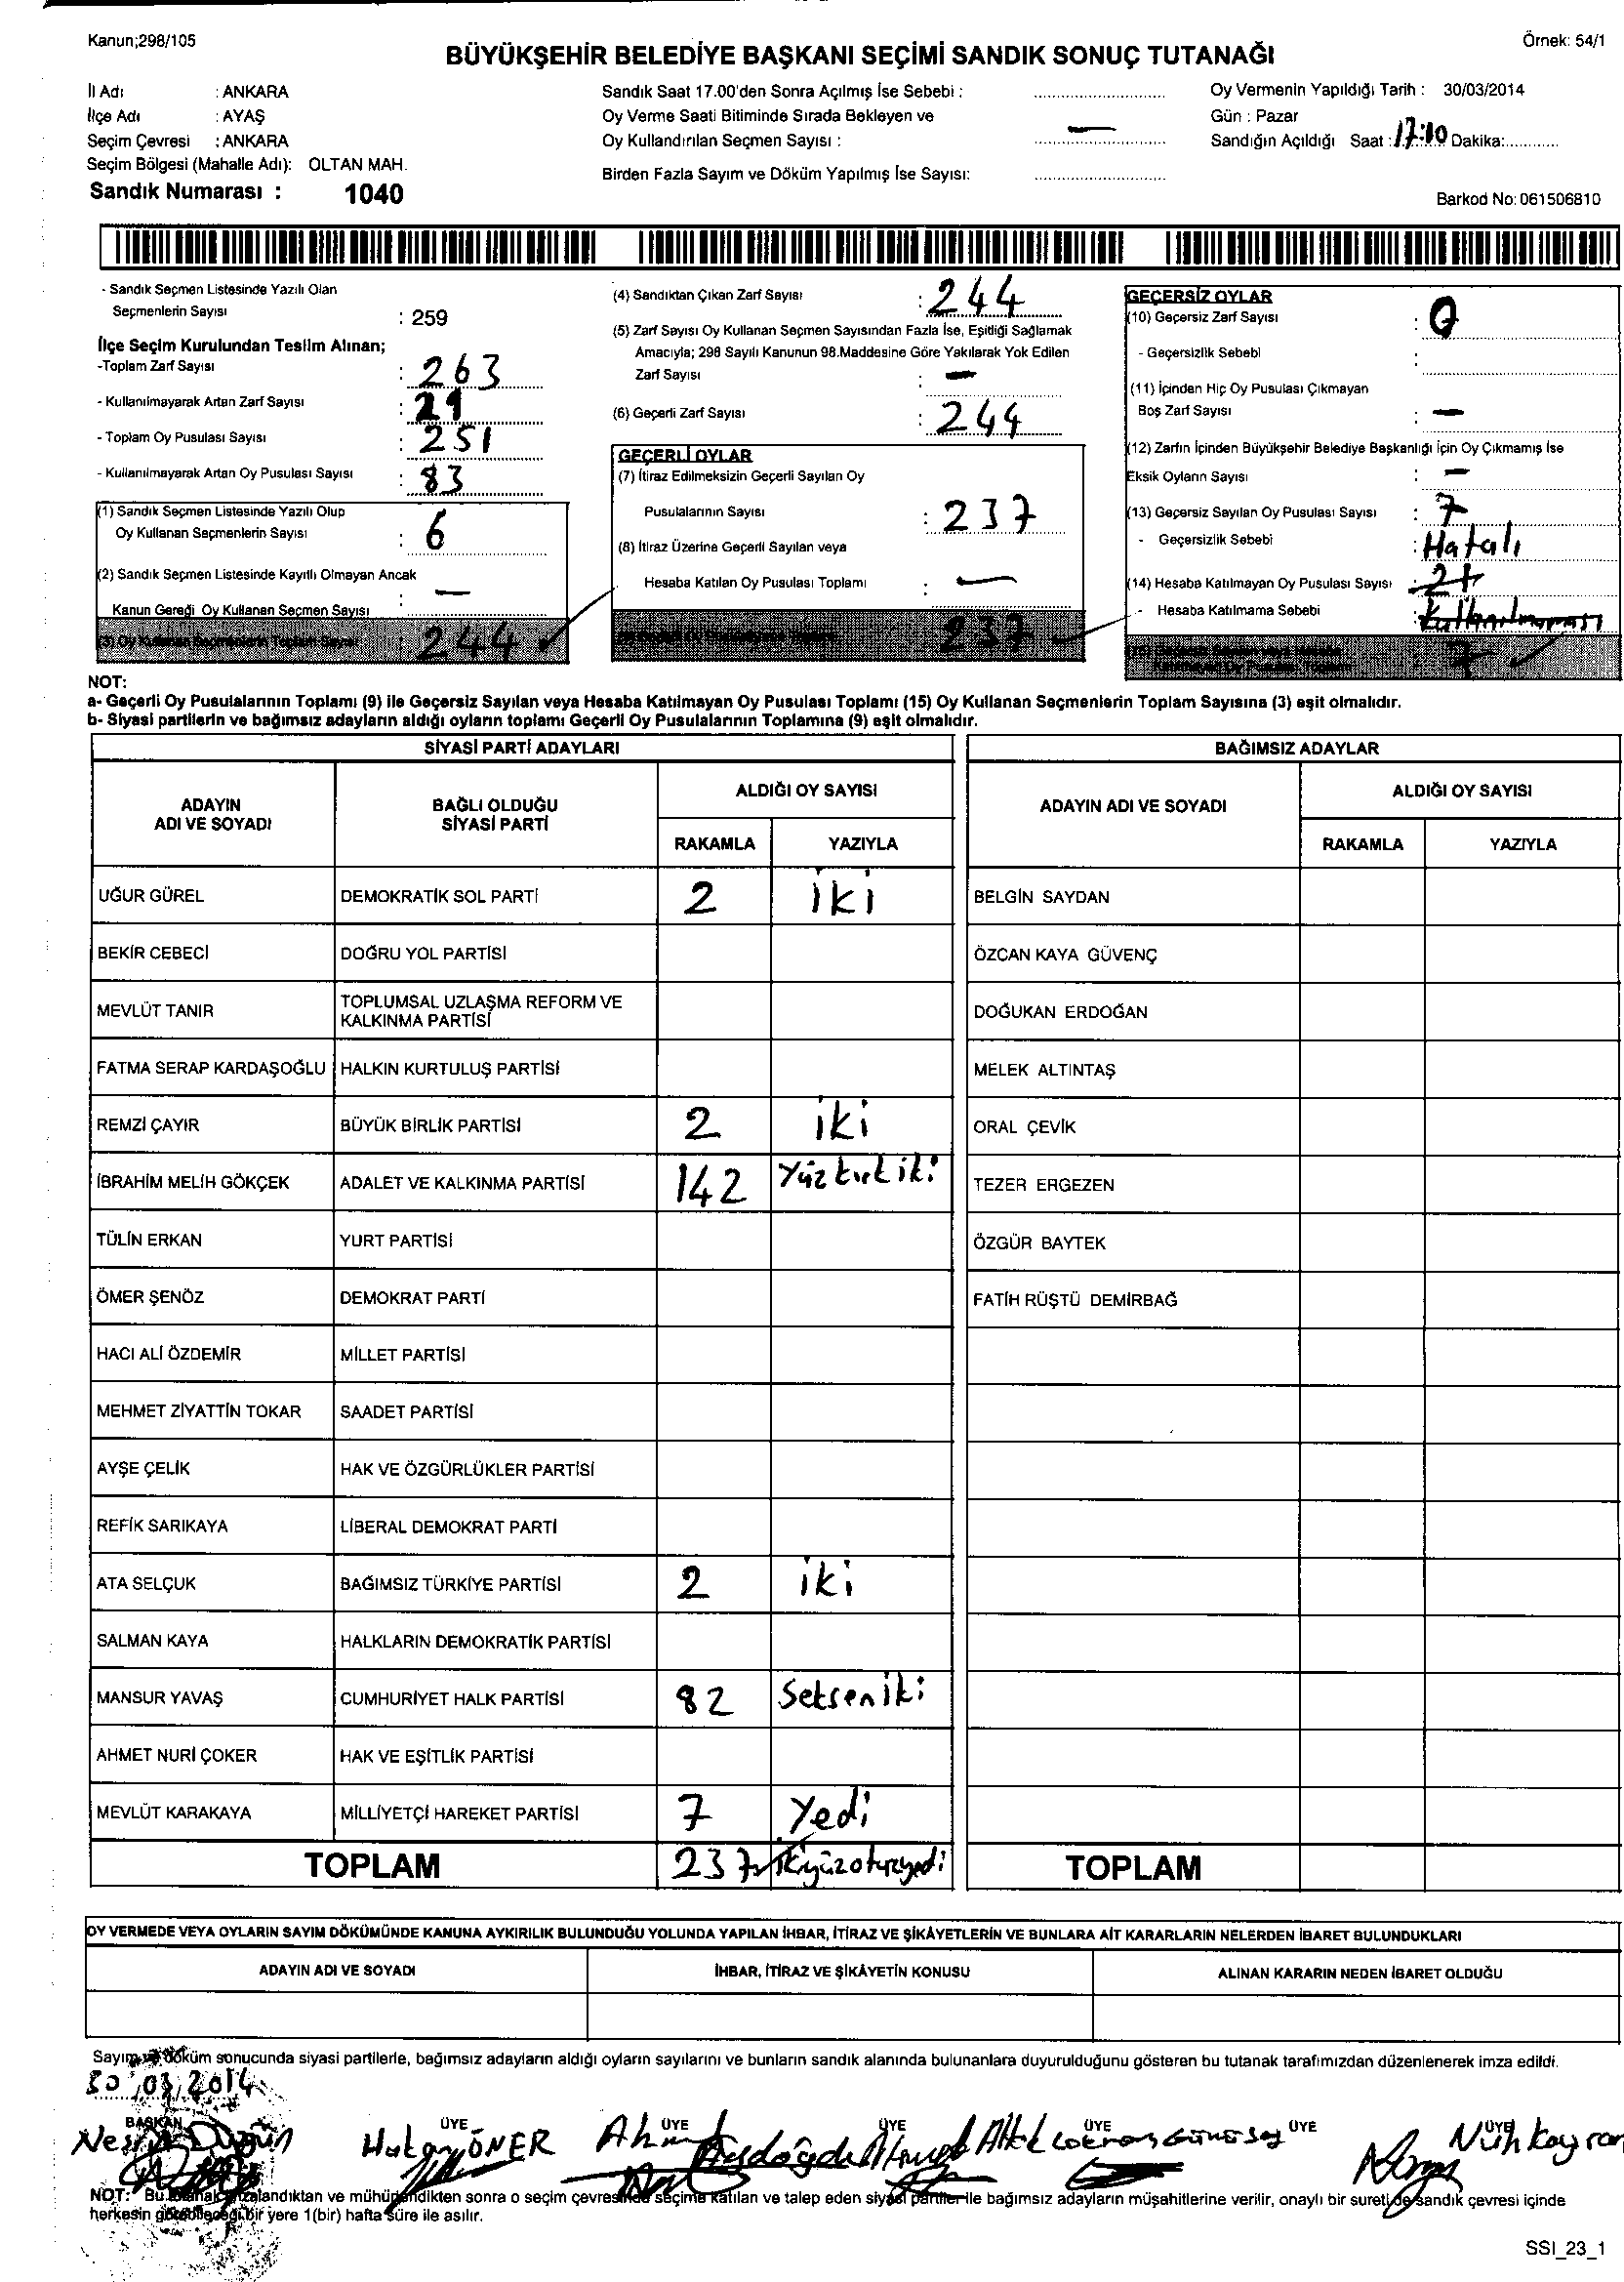 Kanun;298/105
Örnek: 54/1
BÜYÜKŞEHİR BELEDİYE BAŞKANI SEÇİMİ SANDIK SONUÇ TUTANAĞI
İl Adı : ANKARA
İlçe Adı : AYAŞ
Seçim Çevresi : ANKARA
Seçim Bölgesi (Mahalle Adı): OLTAN MAH.
Sandık Numarası : 1040
Sandık Saat 17.00'den Sonra Açılmış İse Sebebi :
Oy Verme Saati Bitiminde Sırada Bekleyen ve
Oy Kullandırılan Seçmen Sayısı : —
Birden Fazla Sayım ve Döküm Yapılmış İse Sayısı:
Oy Vermenin Yapıldığı Tarih : 30/03/2014
Gün : Pazar
Sandığın Açıldığı Saat : 17:10 Dakika:
Barkod No: 061506810
- Sandık Seçmen Listesinde Yazılı Olan
Seçmenlerin Sayısı : 259
İlçe Seçim Kurulundan Teslim Alınan;
-Toplam Zarf Sayısı : 263
- Kullanılmayarak Artan Zarf Sayısı :
- Toplam Oy Pusulası Sayısı : 251
- Kullanılmayarak Artan Oy Pusulası Sayısı : 83
(1) Sandık Seçmen Listesinde Yazılı Olup
Oy Kullanan Seçmenlerin Sayısı : 6
(2) Sandık Seçmen Listesinde Kayıtlı Olmayan Ancak
Kanun Gereği Oy Kullanan Seçmen Sayısı : —
(3) Oy Kullanan Seçmenlerin Toplam Sayısı : 244
(4) Sandıktan Çıkan Zarf Sayısı : 244
(5) Zarf Sayısı Oy Kullanan Seçmen Sayısından Fazla İse, Eşitliği Sağlamak
Amacıyla; 298 Sayılı Kanunun 98.Maddesine Göre Yakılarak Yok Edilen
Zarf Sayısı : —
(6) Geçerli Zarf Sayısı : 244
GEÇERLİ OYLAR
(7) İtiraz Edilmeksizin Geçerli Sayılan Oy
Pusulalarının Sayısı : 237
(8) İtiraz Üzerine Geçerli Sayılan veya
Hesaba Katılan Oy Pusulası Toplamı : —
237
GEÇERSİZ OYLAR
(10) Geçersiz Zarf Sayısı : 0
- Geçersizlik Sebebi :
(11) İçinden Hiç Oy Pusulası Çıkmayan
Boş Zarf Sayısı : —
(12) Zarfın İçinden Büyükşehir Belediye Başkanlığı İçin Oy Çıkmamış İse
Eksik Oyların Sayısı : —
(13) Geçersiz Sayılan Oy Pusulası Sayısı : 7
- Geçersizlik Sebebi : Hatalı
(14) Hesaba Katılmayan Oy Pusulası Sayısı :
- Hesaba Katılmama Sebebi :
7
NOT:
a- Geçerli Oy Pusulalarının Toplamı (9) ile Geçersiz Sayılan veya Hesaba Katılmayan Oy Pusulası Toplamı (15) Oy Kullanan Seçmenlerin Toplam Sayısına (3) eşit olmalıdır.
b- Siyasi partilerin ve bağımsız adayların aldığı oyların toplamı Geçerli Oy Pusulalarının Toplamına (9) eşit olmalıdır.
SİYASİ PARTİ ADAYLARI
ADAYIN ADI VE SOYADI BAĞLI OLDUĞU SİYASİ PARTİ ALDIĞI OY SAYISI
RAKAMLA YAZIYLA
UĞUR GÜREL DEMOKRATİK SOL PARTİ 2 iki
BEKİR CEBECİ DOĞRU YOL PARTİSİ
MEVLÜT TANIR TOPLUMSAL UZLAŞMA REFORM VE KALKINMA PARTİSİ
FATMA SERAP KARDAŞOĞLU HALKIN KURTULUŞ PARTİSİ
REMZİ ÇAYIR BÜYÜK BİRLİK PARTİSİ 2 iki
İBRAHİM MELİH GÖKÇEK ADALET VE KALKINMA PARTİSİ 142 Yüz kırk iki
TÜLİN ERKAN YURT PARTİSİ
ÖMER ŞENÖZ DEMOKRAT PARTİ
HACI ALİ ÖZDEMİR MİLLET PARTİSİ
MEHMET ZİYATTİN TOKAR SAADET PARTİSİ
AYŞE ÇELİK HAK VE ÖZGÜRLÜKLER PARTİSİ
REFİK SARIKAYA LİBERAL DEMOKRAT PARTİ
ATA SELÇUK BAĞIMSIZ TÜRKİYE PARTİSİ 2 iki
SALMAN KAYA HALKLARIN DEMOKRATİK PARTİSİ
MANSUR YAVAŞ CUMHURİYET HALK PARTİSİ 82 Seksen iki
AHMET NURİ ÇOKER HAK VE EŞİTLİK PARTİSİ
MEVLÜT KARAKAYA MİLLİYETÇİ HAREKET PARTİSİ 7 Yedi
TOPLAM 237 ikiyüzotuzyedi
BAĞIMSIZ ADAYLAR
ADAYIN ADI VE SOYADI ALDIĞI OY SAYISI
RAKAMLA YAZIYLA
BELGİN SAYDAN
ÖZCAN KAYA GÜVENÇ
DOĞUKAN ERDOĞAN
MELEK ALTINTAŞ
ORAL ÇEVİK
TEZER ERGEZEN
ÖZGÜR BAYTEK
FATİH RÜŞTÜ DEMİRBAĞ
TOPLAM
OY VERMEDE VEYA OYLARIN SAYIM DÖKÜMÜNDE KANUNA AYKIRILIK BULUNDUĞU YOLUNDA YAPILAN İHBAR, İTİRAZ VE ŞİKÂYETLERİN VE BUNLARA AİT KARARLARIN NELERDEN İBARET BULUNDUKLARI
ADAYIN ADI VE SOYADI İHBAR, İTİRAZ VE ŞİKÂYETİN KONUSU ALINAN KARARIN NEDEN İBARET OLDUĞU
Sayım ve döküm sonucunda siyasi partilerle, bağımsız adayların aldığı oyların sayılarını ve bunların sandık alanında bulunanlara duyurulduğunu gösteren bu tutanak tarafımızdan düzenlenerek imza edildi.
30/03/2014
BAŞKAN ÜYE ÜYE ÜYE ÜYE ÜYE ÜYE
Hakan ÖNER
NOT: Bu tutanak imzalandıktan ve mühürlendikten sonra o seçim çevresinde seçime katılan ve talep eden siyasi partiler ile bağımsız adayların müşahitlerine verilir, onaylı bir sureti de sandık çevresi içinde
herkesin görebileceği bir yere 1(bir) hafta süre ile asılır.
SSI_23_1